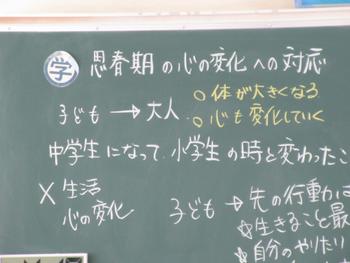 学 思春期の心の変化への対応
子ども → 大人 ○ 体が大きくなる
○ 心も変化していく
中学生になって、小学生の時と変わったこ
× 生活
心の変化
子ども → 先の行動は
☆生きること最
☆自分のやりたい